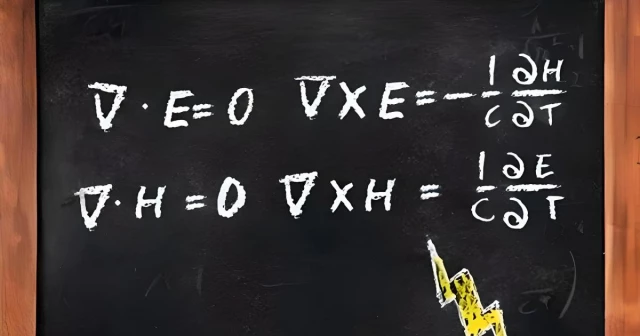 ∇ · E = 0 ∇ X E = - 1/C ∂H/∂T
∇ · H = 0 ∇ X H = 1/C ∂E/∂T